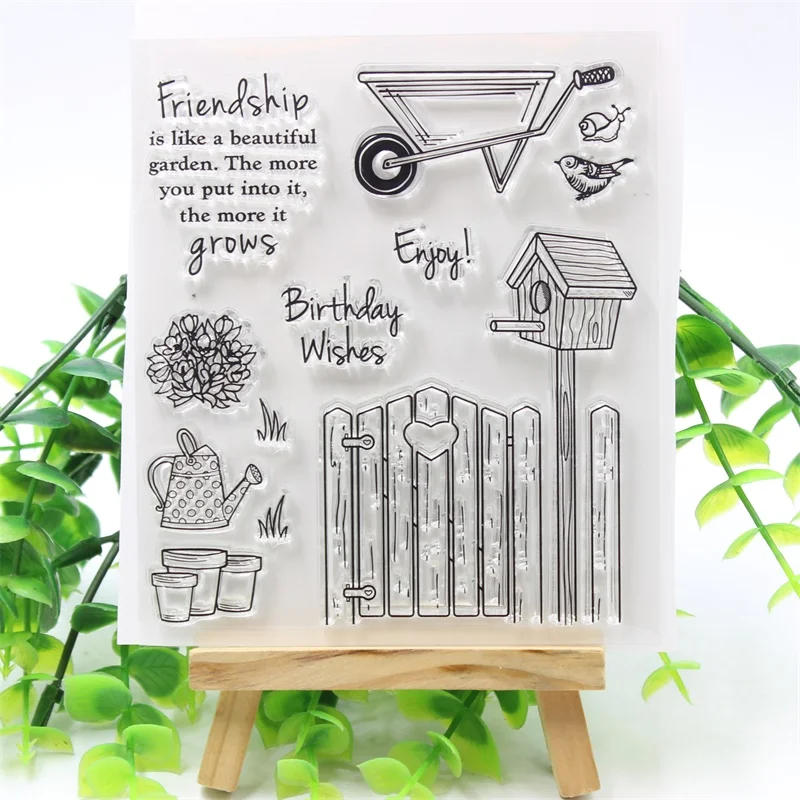 Friendship
is like a beautiful
garden. The more
you put into it,
the more it
grows
Enjoy!
Birthday
Wishes